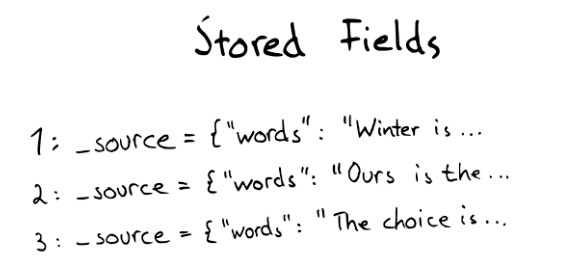 Stored Fields
1: _source = {"words": "Winter is ...
2: _source = {"words": "Ours is the ...
3: _source = {"words": "The choice is ...